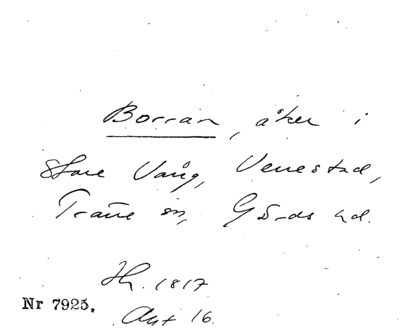 Borran, åker i
Store Vång, Venestad,
Träne sn, Gärds hd.
Sk. 1817
Nr 7925. Akt 16.